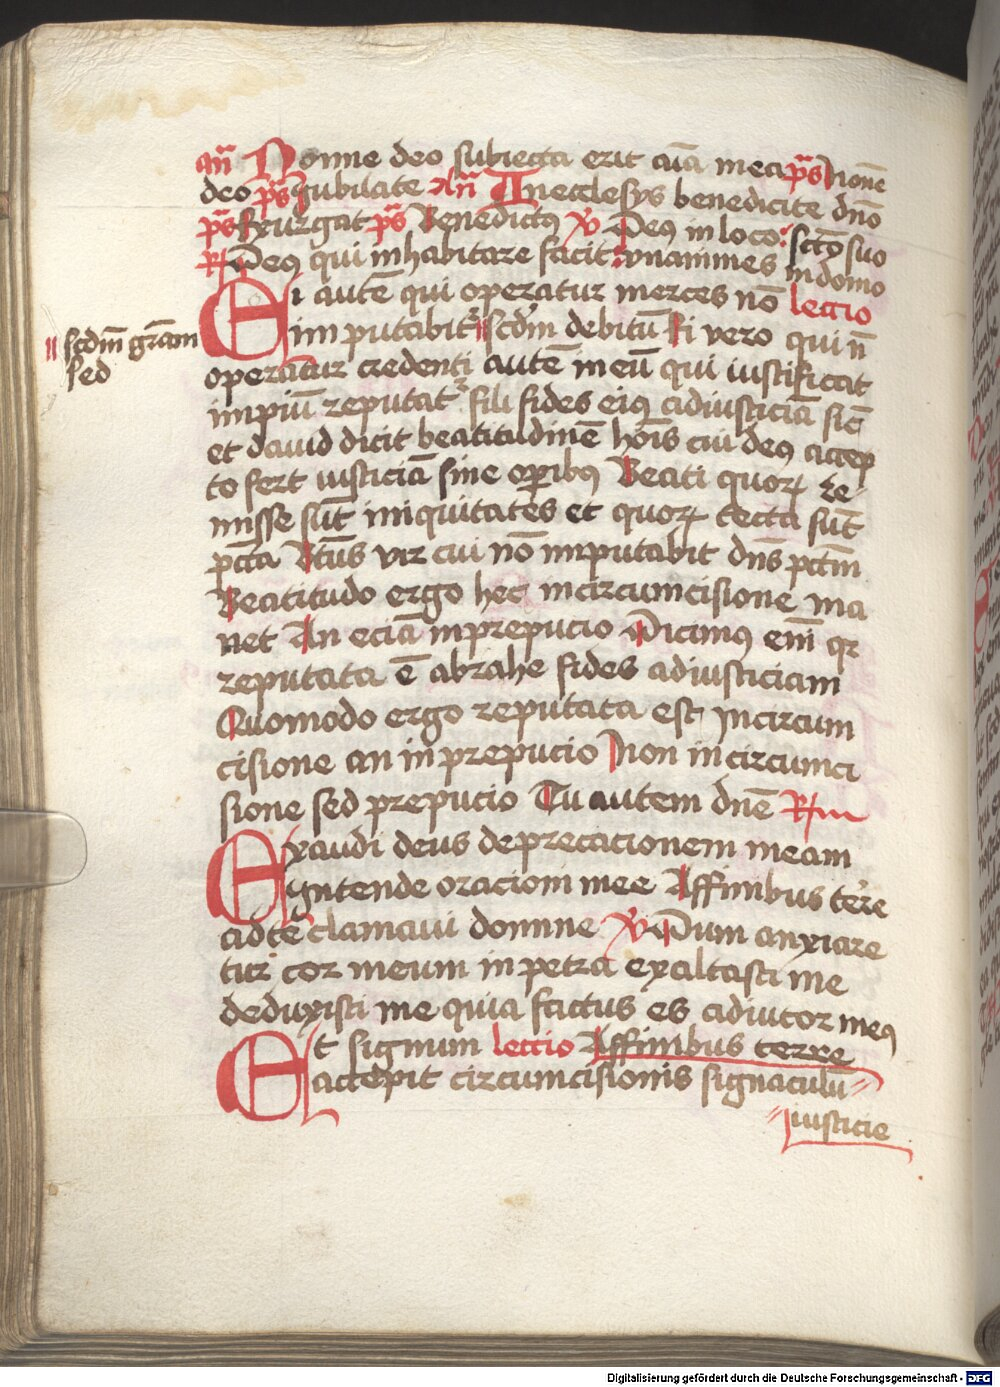 an̄ Nonne deo subiecta erit aīa mea p̄s Nonne
deo p̄s Jubilate An̄ In ecclesys benedicite dn̄o
p̄s Exurgat p̄s Benedictꝯ V̸ Deꝯ in loco sc̄tō suo
R̸ Deꝯ qui inhabitare facit vnanimes in domo
Ei autē qui operatur merces nō lectio
imputabitᷣ scd̄m debitū Si vero qui n̄
scd̄m grām
sed
operatur credenti autē in eū qui iustificat
impiū reputatᷣ fili fides eiꝯ ad iusticiā sic̄
et dauid dicit beatitudinē hōis cui deꝯ accep
to fert iusticiā sine oꝑibꝯ Beati quoꝝ re
misse sūt iniquitates et quoꝝ tecta sūt
pc̄ta Btūs vir cui nō imputabit dn̄s pctm̄
Beatitudo ergo hec in circumcisione ma
net An eciā in prepucio Dicimꝯ eni̅ qr
reputata ē abrahe fides ad iusticiam
Quomodo ergo reputata est in circum
cisione an in prepucio Non in circumci
sione sed prepucio Tu autem dn̄e R̸m
Exaudi deus deprecacionem meam
Intende oraciom mee Affinibus tēre
ad tē clamaui domine V̸ Dum anxiare
tur cor meum in petra exaltasti me
deduxisti me quia factus es adiutor meꝯ
Et signum lectio Affinibus terre
accepit circumcisionis signaculū
iusticie
Digitalisierung gefördert durch die Deutsche Forschungsgemeinschaft - DFG